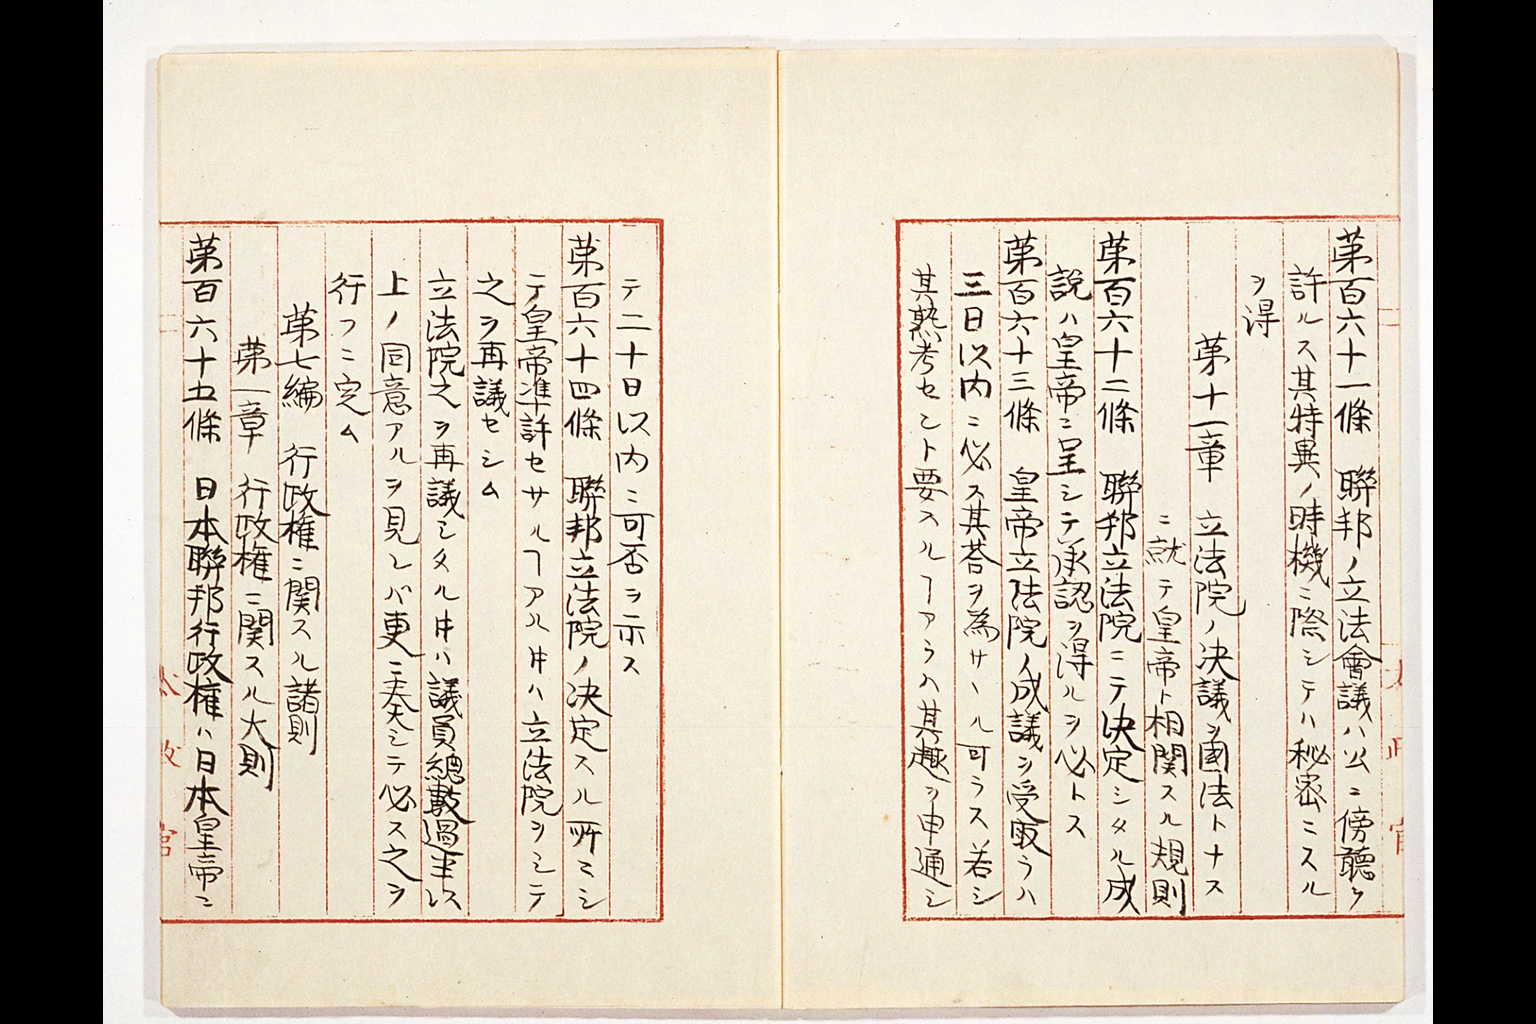 第百六十一條　聯邦ノ立法會議ハ公ニ傍聽ヲ
許ルス其特異ノ時機ニ際シテハ秘密ニスル
ヲ得
第十一章　立法院ノ决議ヲ國法トナス
ニ就テ皇帝ト相関スル規則
第百六十二條　聯邦立法院ニテ决定シタル成
説ハ皇帝ニ呈シテ承認ヲ得ルヲ必トス
第百六十三條　皇帝立法院ノ成議ヲ受取ラハ
三日以内ニ必ス其荅ヲ為サヽル可ラス若シ
其熟考セント要スルヿアラハ其趣ヲ申通シ
テ二十日以内ニ可否ヲ示ス
第百六十四條　聯邦立法院ノ决定スル所ニシ
テ皇帝准許セサルヿアル牛ハ立法院ヲシテ
之ヲ再議セシム
立法院之ヲ再議シタル牛ハ議員總數過半以
上ノ同意アルヲ見レバ更ニ奏シテ必ス之ヲ
行フニ定ム
第七編　行政権ニ関スル諸則
第一章　行政権ニ関スル大則
第百六十五條　日本聯邦行政権ハ日本皇帝ニ